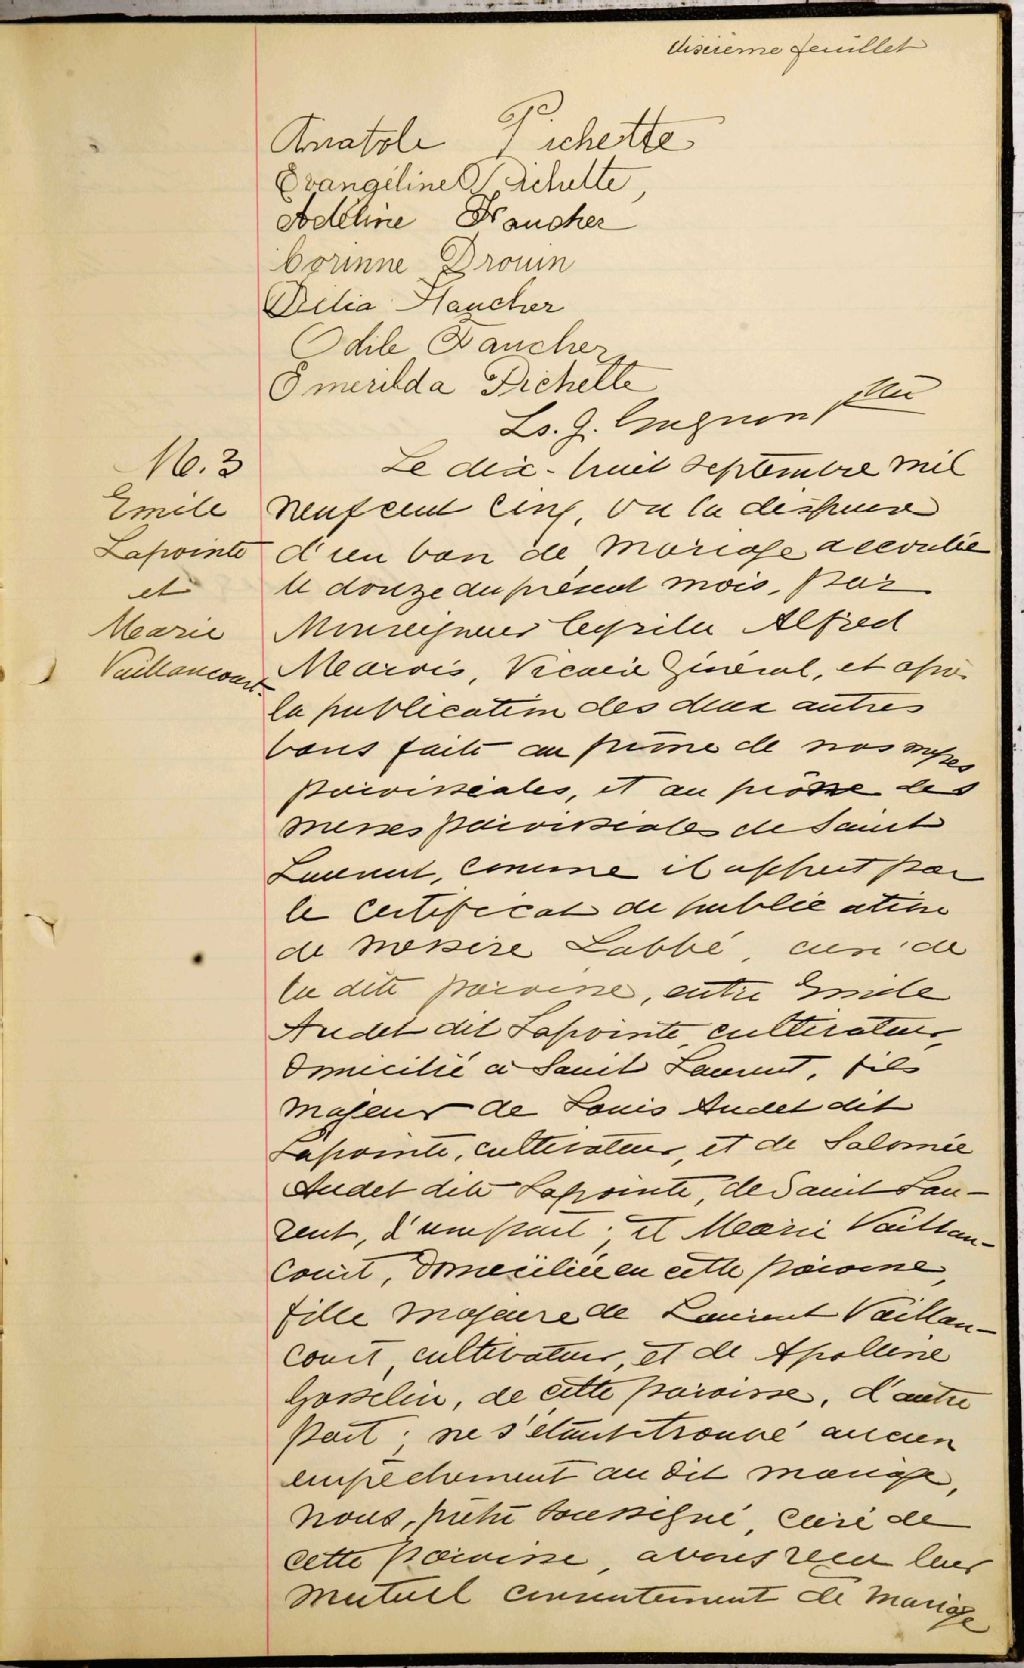 dixième feuillet
Anatole Pichette
Evangéline Pichette,
Adéline Faucher
Corinne Drouin
Délia Faucher
Odile Faucher
Emerilda Pichette
Ls. J. Gagnon ptre
M. 3
Emile
Lapointe
et
Marie
Vaillancourt.
Le dix-huit septembre mil
neuf cent cinq, vu la dispense
d'un ban de mariage accordée
le douze du présent mois, par
Monseigneur Cyrille Alfred
Marois, Vicaire Général, et après
la publication des deux autres
bans faite au prône de nos messes
paroissiales, et au prône des
messes paroissiales de Saint
Laurent, comme il appert par
le certificat de publication
de messire Labbé, curé de
la dite paroisse, entre Emile
Audet dit Lapointe, cultivateur,
domicilié à Saint Laurent, fils
majeur de Louis Audet dit
Lapointe, cultivateur, et de Salomée
Audet dite Lapointe, de Saint Lau-
rent, d'une part; et Marie Vaillan-
court, domiciliée en cette paroisse,
fille majeure de Laurent Vaillan-
court, cultivateur, et de Apolline
Gosselin, de cette paroisse, d'autre
part; ne s'étant trouvé aucun
empêchement au dit mariage,
nous, prêtre soussigné, curé de
cette paroisse, avons reçu leur
mutuel consentement de mariage